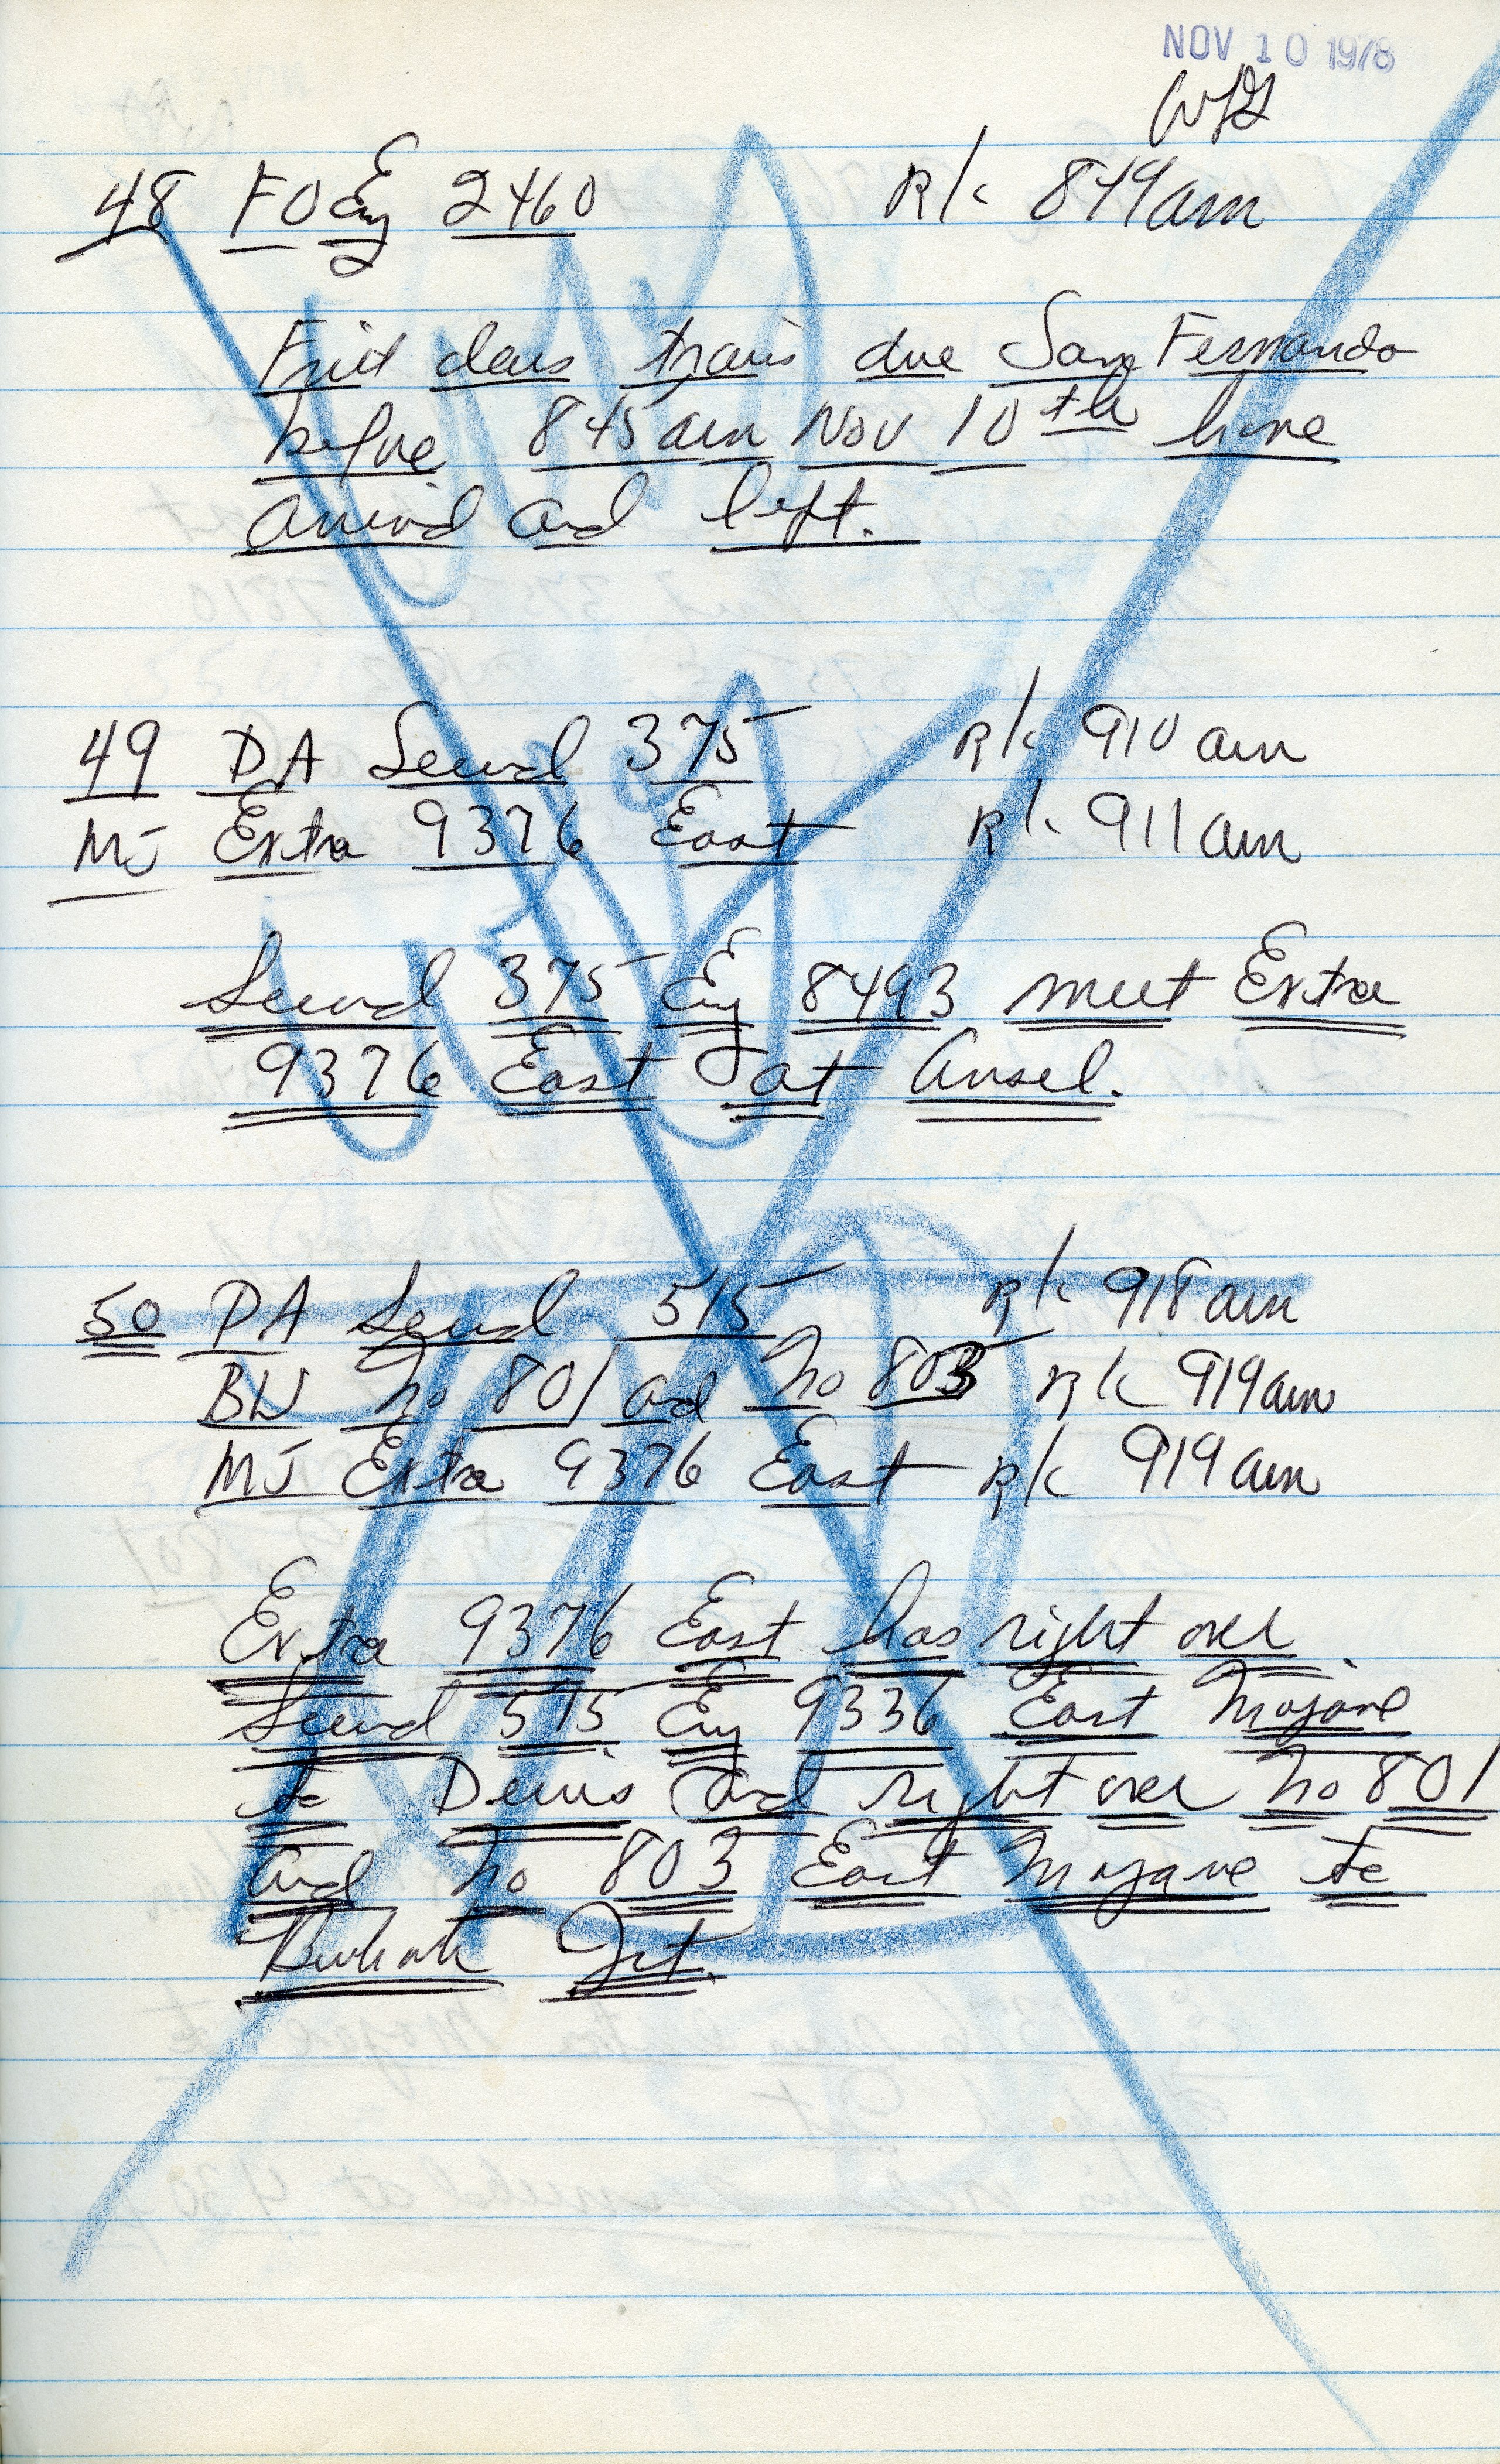 NOV 10 1978
48 FO Eng 2460 R/c 849am
First class trains due San Fernando
before 845am Nov 10th have
arrived and left.
49 DA Second 375 R/c 910 am
MJ Extra 9376 East R/c 911am
Second 375 Eng 8493 meet Extra
9376 East at Ansel.
50 DA Second 515 R/c 918am
BW No 801 and No 803 R/c 919am
MJ Extra 9376 East R/c 919am
Extra 9376 East has right over
Second 515 Eng 9336 East Mojave
to Denis and right over No 801
and No 803 East Mojave to
Burbank Jct.